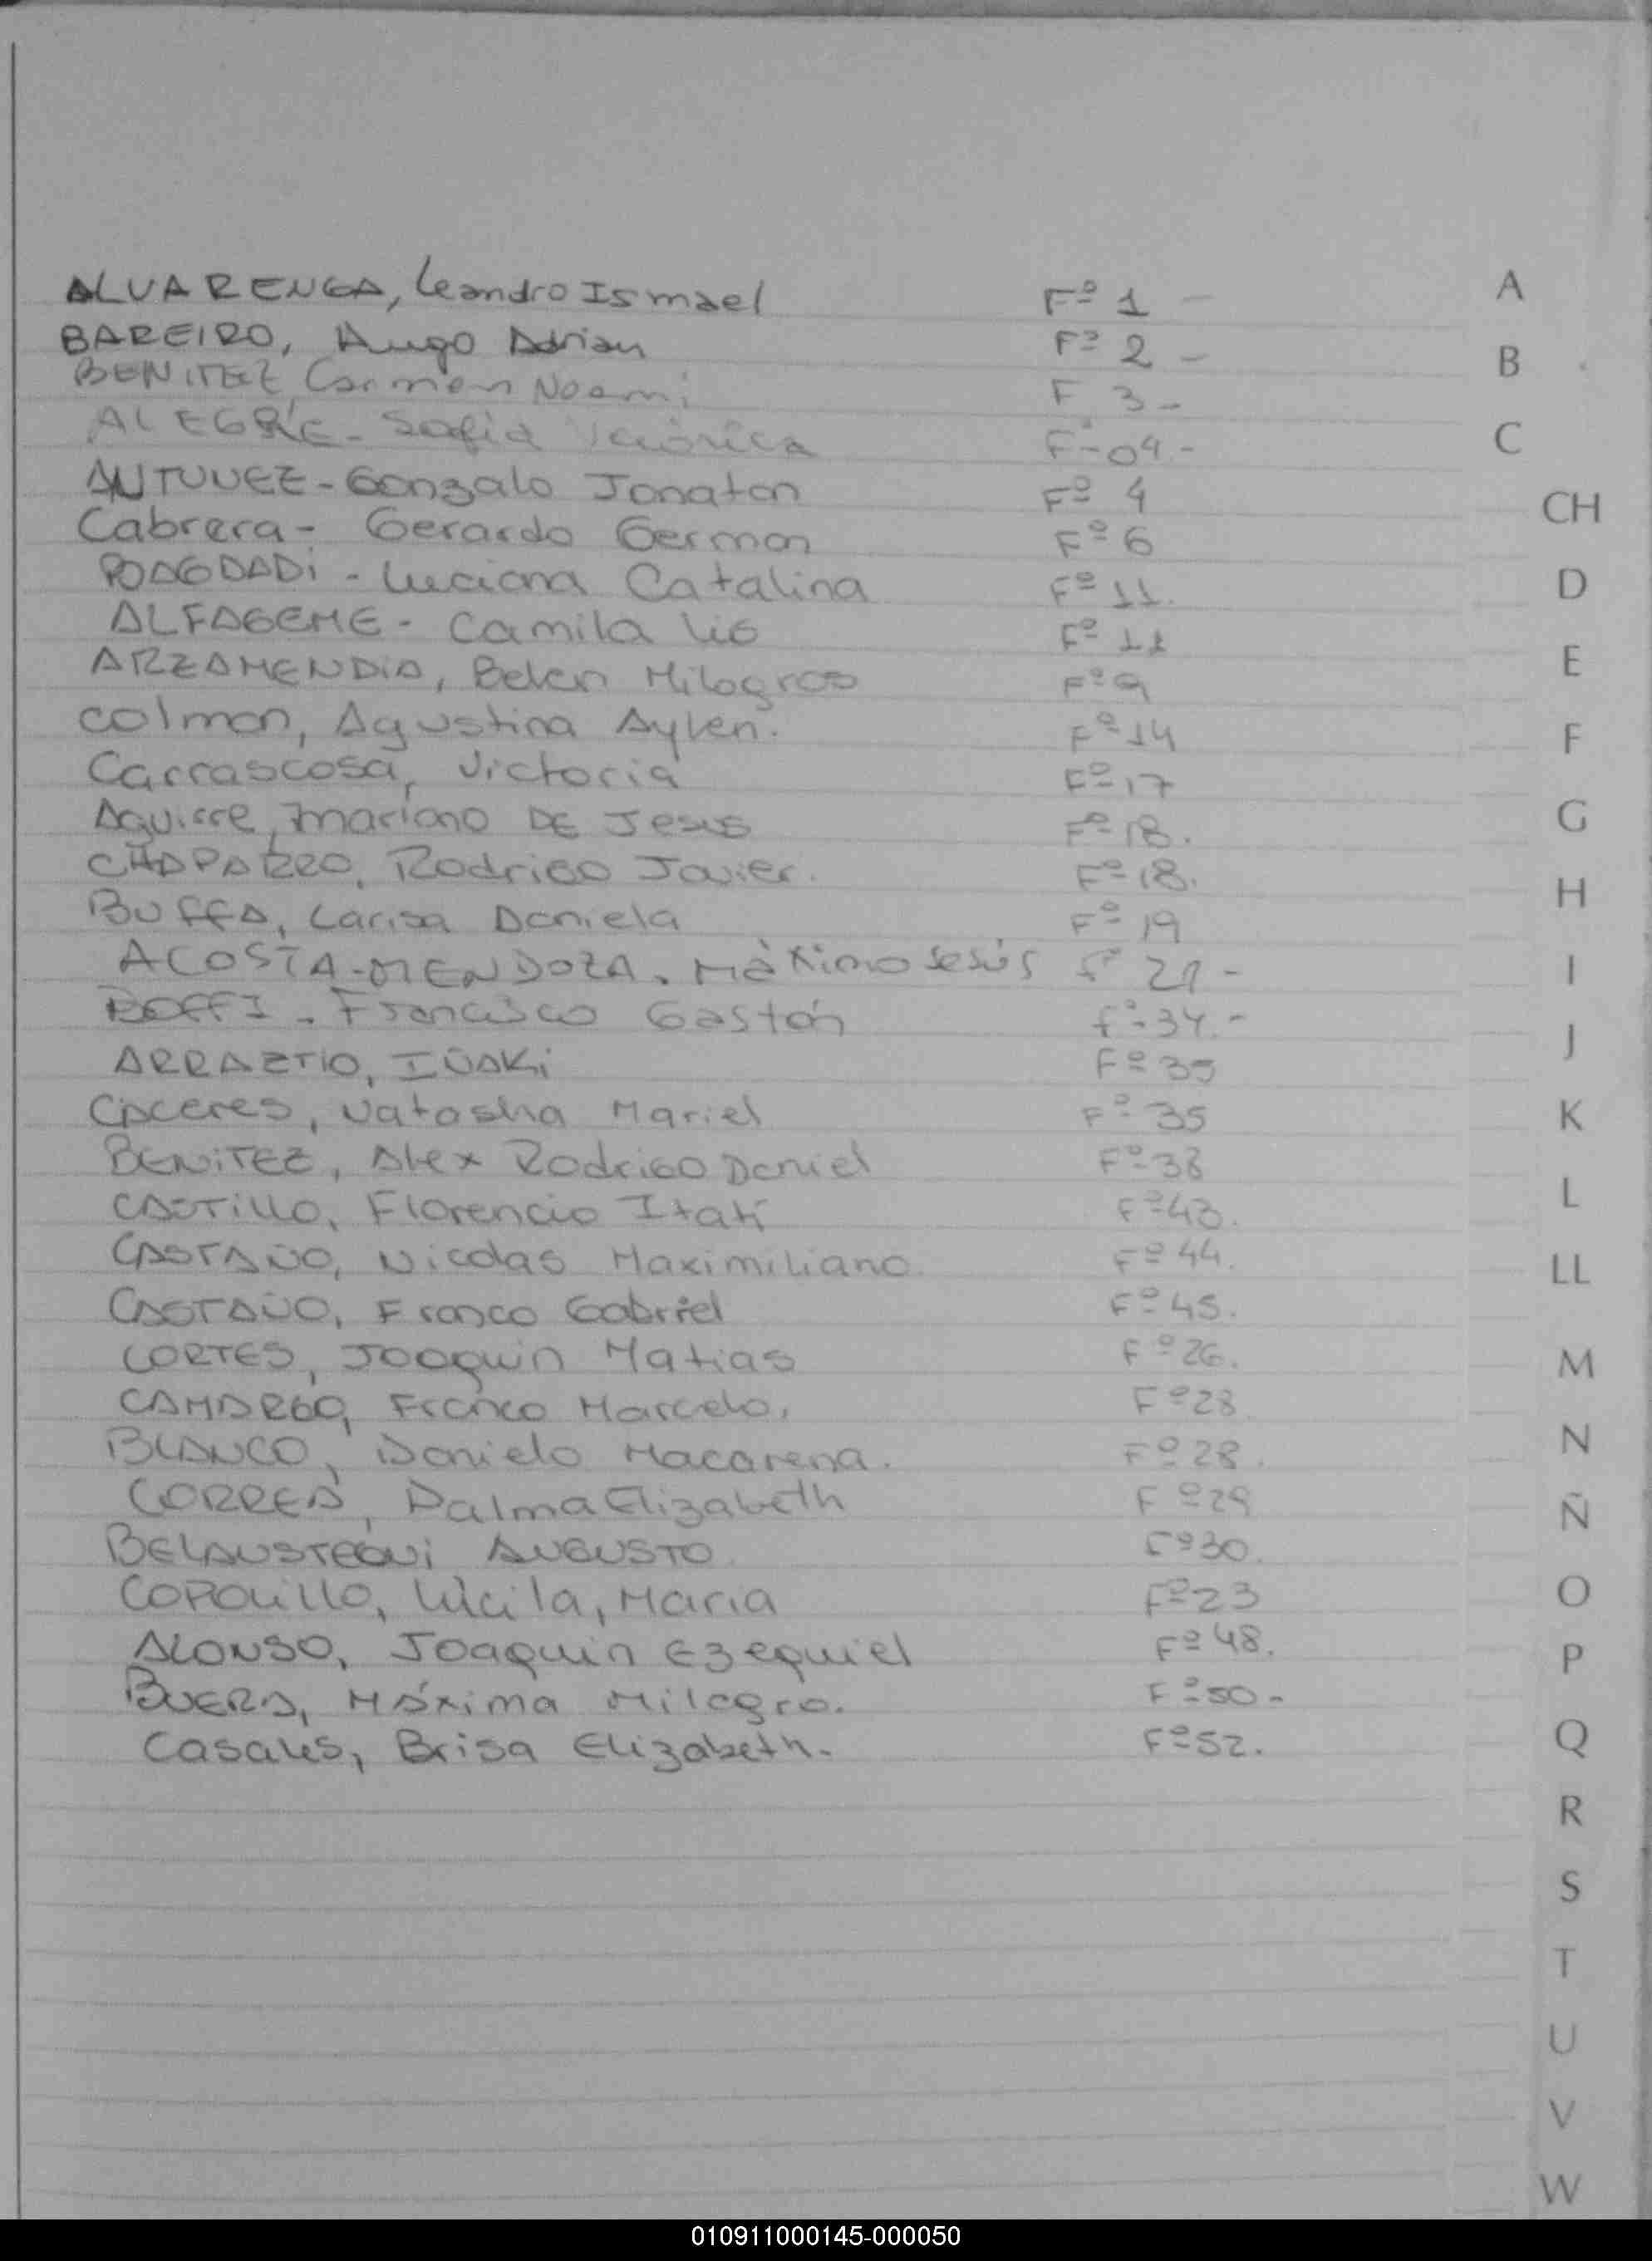 ALVARENGA, Leandro Ismael Fº 1 -
BAREIRO, Hugo Adrian Fº 2 -
BENITEZ, Carmen Noemi F 3 -
ALEGRE - Sofia Verónica Fº 04 -
ANTUNEZ - Gonzalo Jonatan Fº 4
Cabrera - Gerardo German Fº 6
Luciana Catalina Fº 11.
ALFAGEME - Camila Fº 11
ARZAMENDIA, Belen Milagros Fº 9
Colman, Agustina Aylen. Fº 14
Carrascosa, Victoria Fº 17
Aguirre, Mariano DE Jesus Fº 18.
CHAPARRO, Rodrigo Javier. Fº 18.
BUFFA, Larisa Daniela Fº 19
ACOSTA-MENDOZA. Máximo Jesús Fº 21 -
BOFFI - Francisco Gastón Fº 34. -
ARRAZTIO, IÑAKi Fº 35
Caceres, Natasha Mariel Fº 35
BENiTEZ, Alex Rodrigo Daniel Fº 38
CASTILLO, Florencia Itatí Fº 43.
CASTAÑO, Nicolas Maximiliano. Fº 44.
CASTAÑO, Franco Gabriel Fº 45.
CORTES, Joaquin Matias Fº 26.
CAMARGO, Franco Marcelo. Fº 28
BLANCO, Daniela Macarena. Fº 28.
CORREA, Dalma Elizabeth Fº 29
BELAUSTEGUi AUGUSTO Fº 30.
Lucila, Maria Fº 23
ALONSO, Joaquin Ezequiel Fº 48.
BUERA, Máxima Milagro. Fº 50 -
Casales, Brisa Elizabeth. Fº 52.
A
B
C
CH
D
E
F
G
H
I
J
K
L
LL
M
N
Ñ
O
P
Q
R
S
T
U
V
W
010911000145-000050